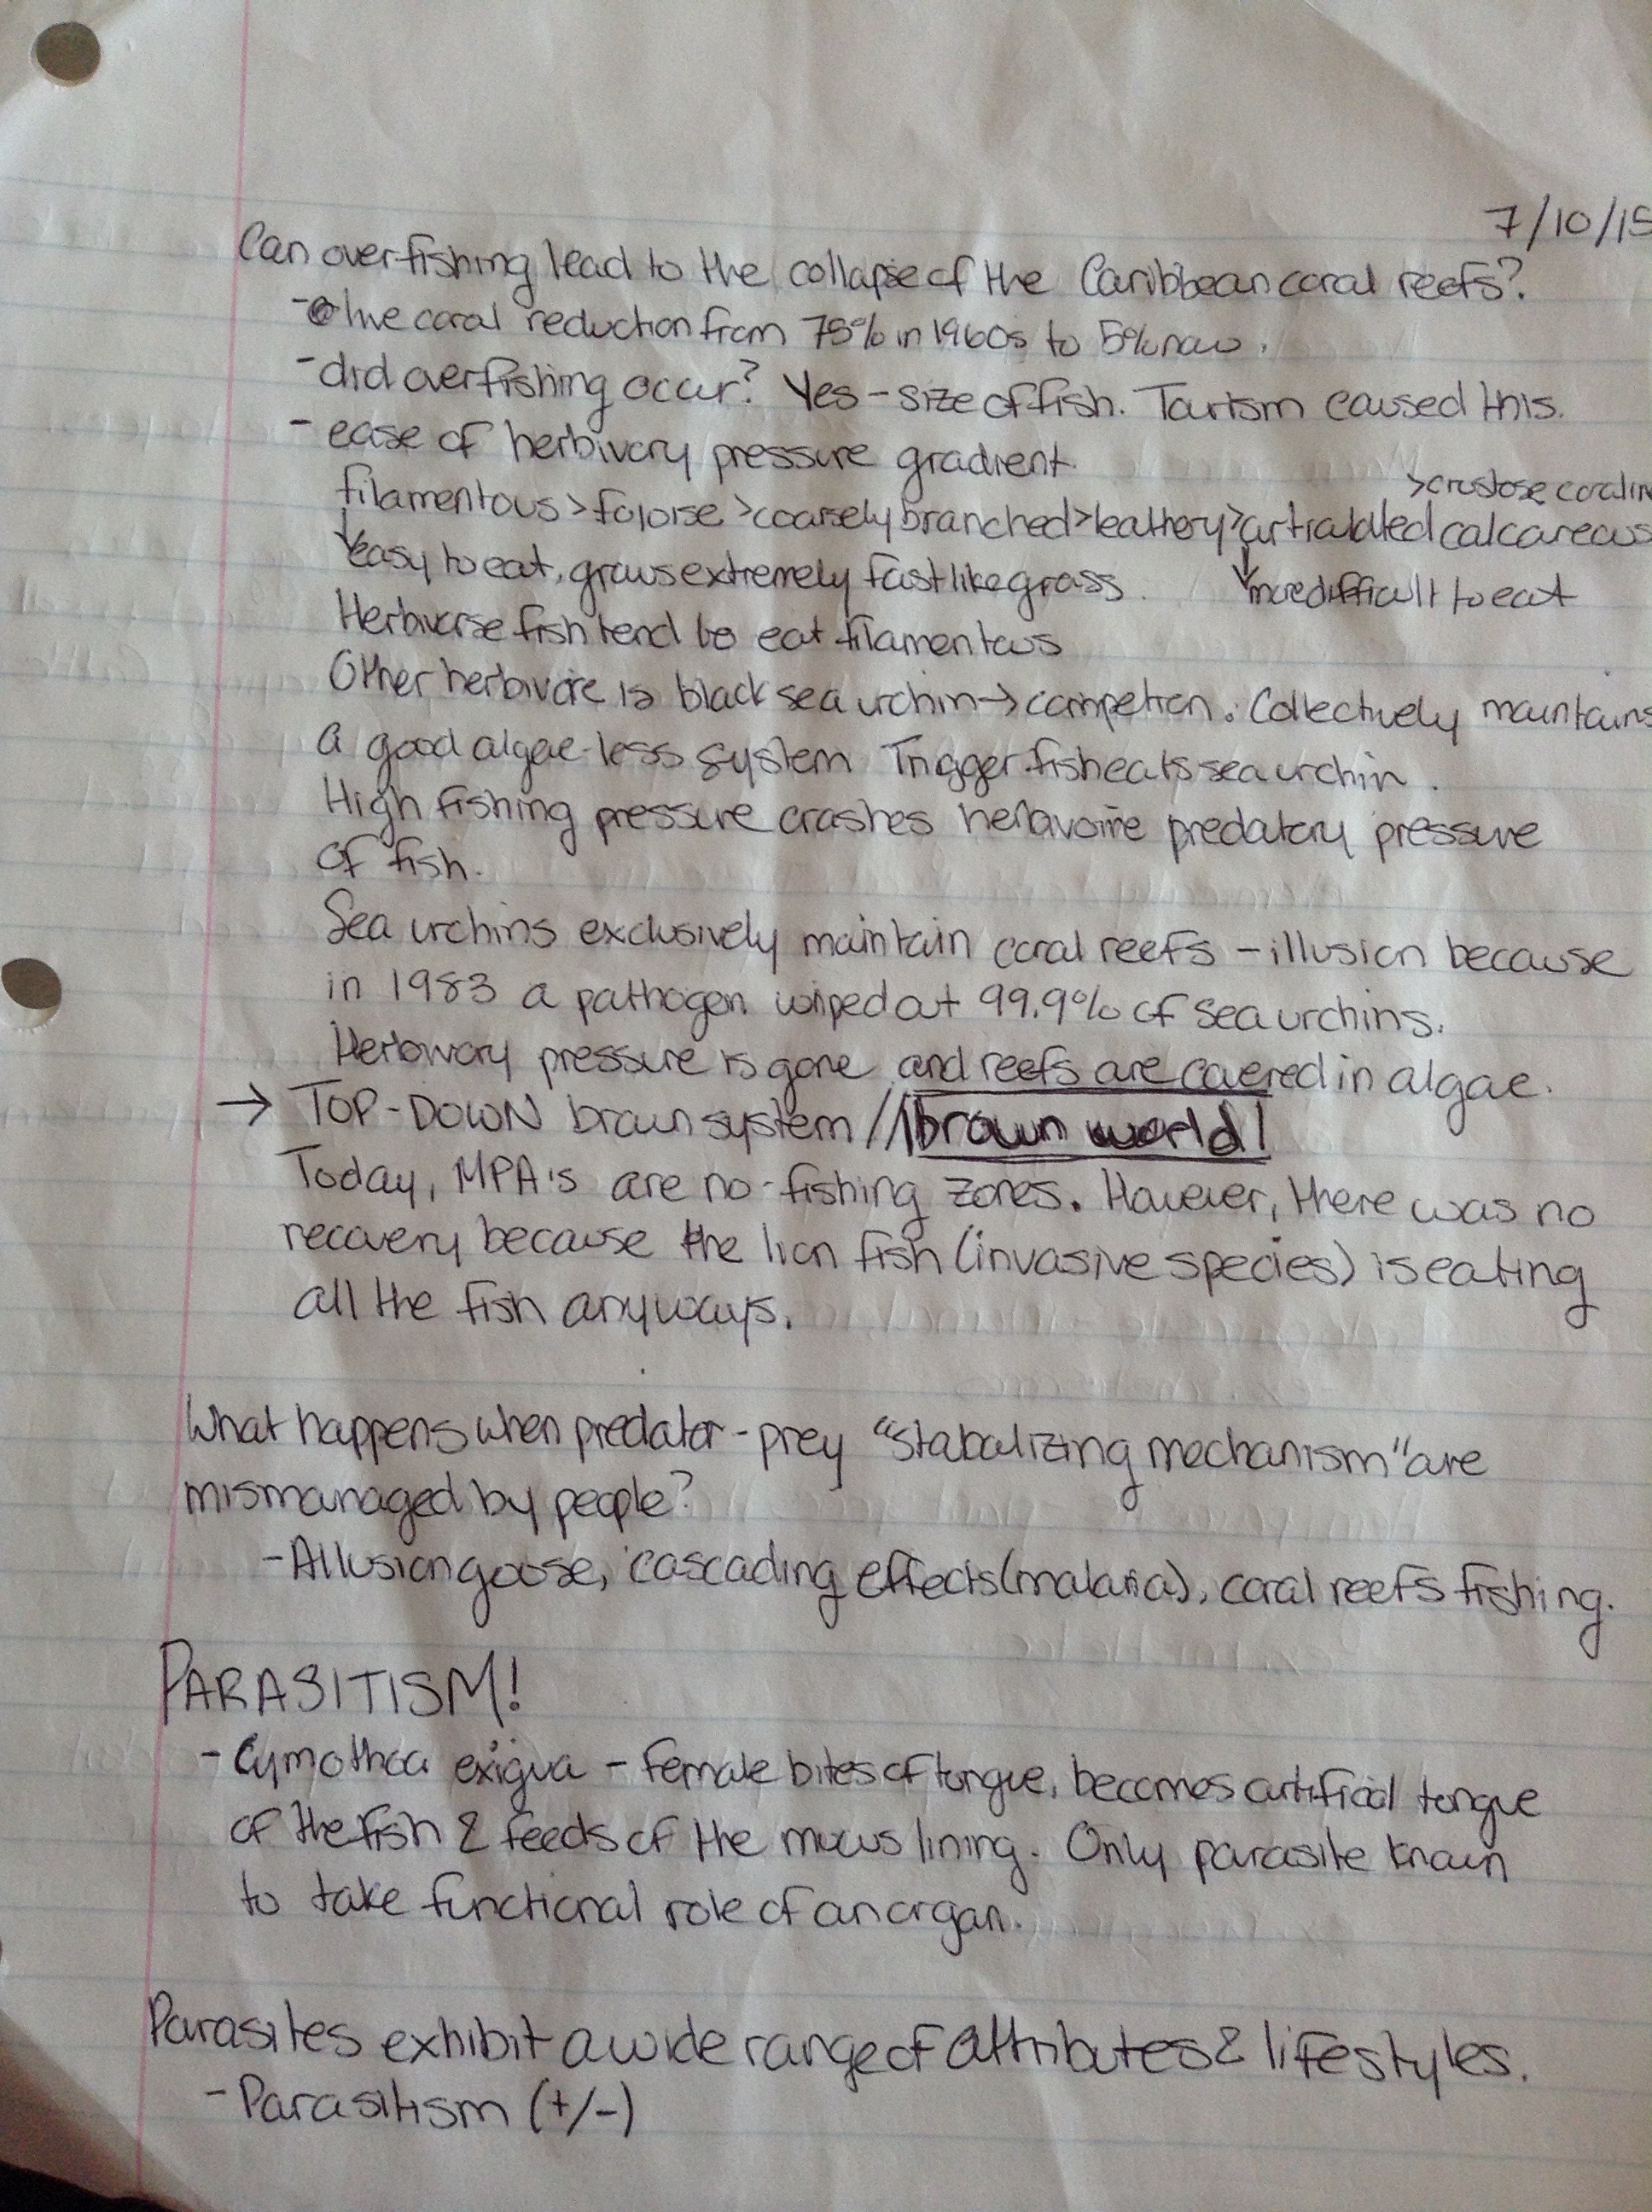 7/10/15
Can overfishing lead to the collapse of the Caribbean coral reefs?
- live coral reduction from 75% in 1960s to 5% now.
- did overfishing occur? Yes - size of fish. Tourism caused this.
- ease of herbivory pressure gradient.
> crustose coralin
filamentous > foloise > coarsely branched > leathery > articulated calcareous
↓ easy to eat, grows extremely fast like grass. ↓ more difficult to eat
Herbivorse fish tend to eat filamentous
Other herbivore is black sea urchin → competion. Collectively maintains
a good algae-less system Trigger fish eats sea urchin.
High fishing pressure crashes herbavoire predatory pressure
of fish.
Sea urchins exclusively maintain coral reefs - illusion because
in 1983 a pathogen wiped out 99.9% of sea urchins.
Herbivory pressure is gone and reefs are covered in algae.
→ TOP-DOWN brown system // brown world!
Today, MPA's are no-fishing zones. However, there was no
recovery because the lion fish (invasive species) is eating
all the fish anyways.
What happens when predator-prey "stabalizing mechanism" are
mismanaged by people?
- Allusion goose, cascading effects (malaria), coral reefs fishing.
PARASITISM!
- Cymothoa exigua - female bites of tongue, becomes artificial tongue
of the fish & feeds of the mucus lining. Only parasite known
to take functional role of an organ.
Parasites exhibit a wide range of attributes & lifestyles.
- Parasitism (+/-)